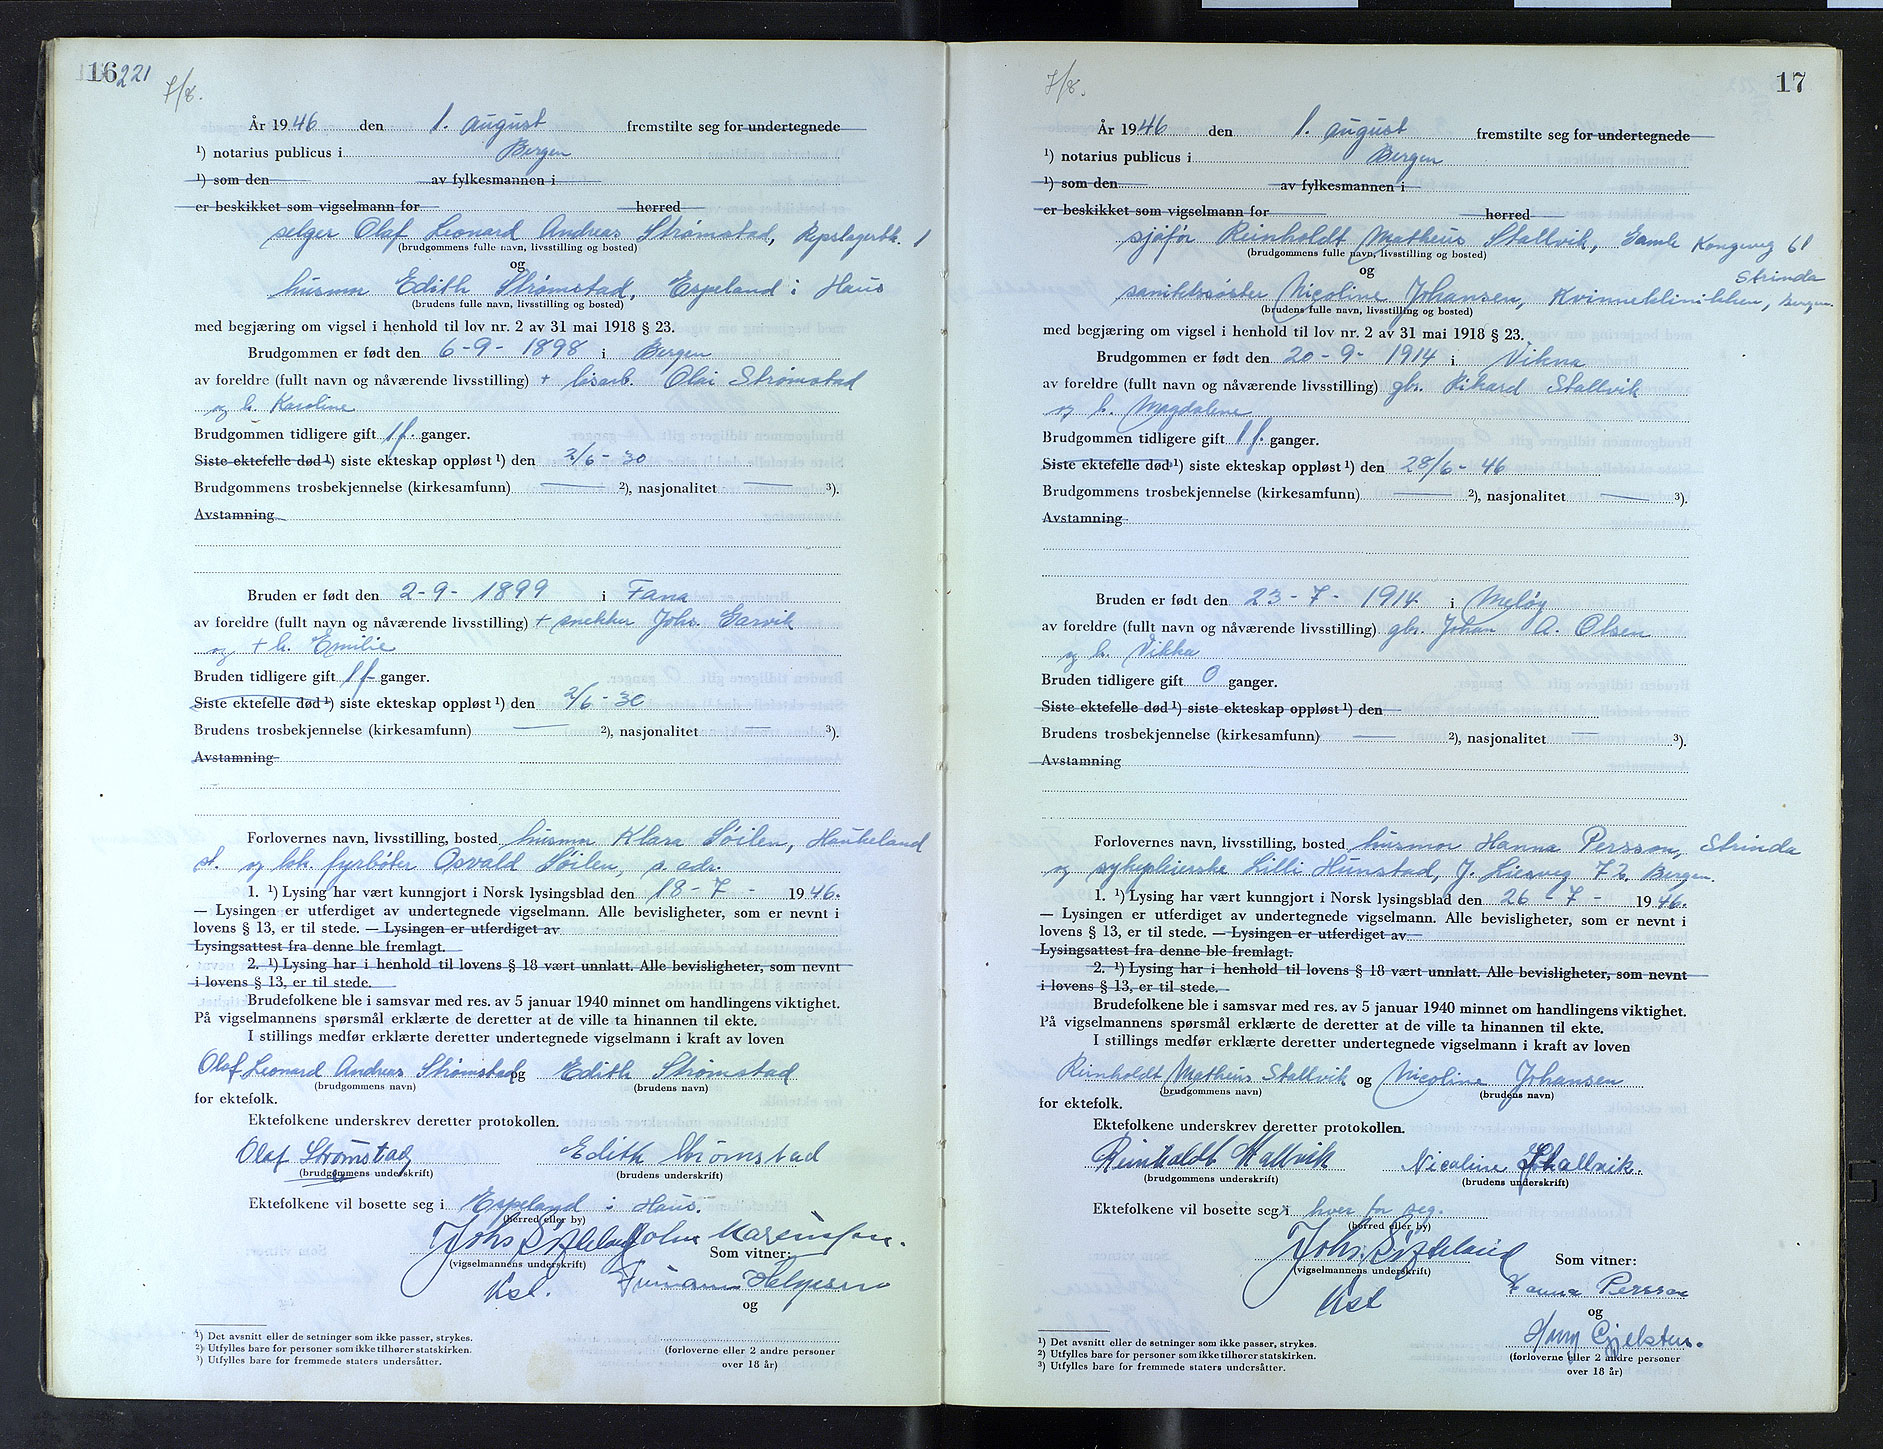 16
221
7/8.
År 1946 den 1. august fremstilte seg for undertegnede
¹) notarius publicus i Bergen
¹) som den av fylkesmannen i
er beskikket som vigselmann for herred
selger Olaf Leonard Andreas Strømstad, Repslagerbk. 1
(brudgommens fulle navn, livsstilling og bosted)
og
husmor Edith Strømstad, Espeland i Haus
(brudens fulle navn, livsstilling og bosted)
med begjæring om vigsel i henhold til lov nr. 2 av 31 mai 1918 § 23.
Brudgommen er født den 6-9-1898 i Bergen
av foreldre (fullt navn og nåværende livsstilling) + løsarb. Olai Strømstad
og h. Karoline
Brudgommen tidligere gift 1 f. ganger.
Siste ektefelle død ¹) siste ekteskap oppløst ¹) den 2/6-30
Brudgommens trosbekjennelse (kirkesamfunn) — ²), nasjonalitet — ³).
Avstamning
Bruden er født den 2-9-1899 i Fana
av foreldre (fullt navn og nåværende livsstilling) + snekker Johs. Garvik
og + h. Emilie
Bruden tidligere gift 1 f. ganger.
Siste ektefelle død ¹) siste ekteskap oppløst ¹) den 2/6-30
Brudens trosbekjennelse (kirkesamfunn) — ²), nasjonalitet — ³).
Avstamning
Forlovernes navn, livsstilling, bosted husmor Klara Søilen, Haukeland
st. og lok. fyrbøter Osvald Søilen, s. adr.
1. ¹) Lysing har vært kunngjort i Norsk lysingsblad den 18-7- 1946.
— Lysingen er utferdiget av undertegnede vigselmann. Alle bevisligheter, som er nevnt i
lovens § 13, er til stede. — Lysingen er utferdiget av
Lysingsattest fra denne ble fremlagt.
2. ¹) Lysing har i henhold til lovens § 18 vært unnlatt. Alle bevisligheter, som nevnt
i lovens § 13, er til stede.
Brudefolkene ble i samsvar med res. av 5 januar 1940 minnet om handlingens viktighet.
På vigselmannens spørsmål erklærte de deretter at de ville ta hinannen til ekte.
I stillings medfør erklærte deretter undertegnede vigselmann i kraft av loven
Olaf Leonard Andreas Strømstad og Edith Strømstad
(brudgommens navn) (brudens navn)
for ektefolk.
Ektefolkene underskrev deretter protokollen.
Olaf Strømstad Edith Strømstad
(brudgommens underskrift) (brudens underskrift)
Ektefolkene vil bosette seg i Espeland i Haus.
(herred eller by)
Som vitner:
(vigselmannens underskrift)
Kst.
og
¹) Det avsnitt eller de setninger som ikke passer, strykes.
²) Utfylles bare for personer som ikke tilhører statskirken.
³) Utfylles bare for fremmede staters undersåtter.
(forloverne eller 2 andre personer
over 18 år)
17
7/8.
År 1946 den 1. august fremstilte seg for undertegnede
¹) notarius publicus i Bergen
¹) som den av fylkesmannen i
er beskikket som vigselmann for herred
sjåfør Reinholdt Matheus Stallvik, Gamle Kongeveg 61
Strinda
(brudgommens fulle navn, livsstilling og bosted)
og
sanitetssøster Nicoline Johansen, Kvinneklinikken, Bergen.
(brudens fulle navn, livsstilling og bosted)
med begjæring om vigsel i henhold til lov nr. 2 av 31 mai 1918 § 23.
Brudgommen er født den 20-9-1914 i Vikna
av foreldre (fullt navn og nåværende livsstilling) gbr. Rikard Stallvik
og h. Magdalene
Brudgommen tidligere gift 1 f. ganger.
Siste ektefelle død ¹) siste ekteskap oppløst ¹) den 28/6-46
Brudgommens trosbekjennelse (kirkesamfunn) — ²), nasjonalitet — ³).
Avstamning
Bruden er født den 23-7-1914 i Meløy
av foreldre (fullt navn og nåværende livsstilling) gbr. Johan A. Olsen
og h. Vikka
Bruden tidligere gift 0 ganger.
Siste ektefelle død ¹) siste ekteskap oppløst ¹) den
Brudens trosbekjennelse (kirkesamfunn) — ²), nasjonalitet — ³).
Avstamning
Forlovernes navn, livsstilling, bosted husmor Hanna Persson, Strinda
og sykepleierske Lilli Hunstad, J. Liesveg 72, Bergen.
1. ¹) Lysing har vært kunngjort i Norsk lysingsblad den 26-7- 1946.
— Lysingen er utferdiget av undertegnede vigselmann. Alle bevisligheter, som er nevnt i
lovens § 13, er til stede. — Lysingen er utferdiget av
Lysingsattest fra denne ble fremlagt.
2. ¹) Lysing har i henhold til lovens § 18 vært unnlatt. Alle bevisligheter, som nevnt
i lovens § 13, er til stede.
Brudefolkene ble i samsvar med res. av 5 januar 1940 minnet om handlingens viktighet.
På vigselmannens spørsmål erklærte de deretter at de ville ta hinannen til ekte.
I stillings medfør erklærte deretter undertegnede vigselmann i kraft av loven
Reinholdt Matheus Stallvik og Nicoline Johansen
(brudgommens navn) (brudens navn)
for ektefolk.
Ektefolkene underskrev deretter protokollen.
Reinholdt Stallvik Nicoline Stallvik.
(brudgommens underskrift) (brudens underskrift)
Ektefolkene vil bosette seg i hver for seg.
(herred eller by)
Som vitner:
(vigselmannens underskrift)
Kst
Hanna Persson
og
¹) Det avsnitt eller de setninger som ikke passer, strykes.
²) Utfylles bare for personer som ikke tilhører statskirken.
³) Utfylles bare for fremmede staters undersåtter.
(forloverne eller 2 andre personer
over 18 år)